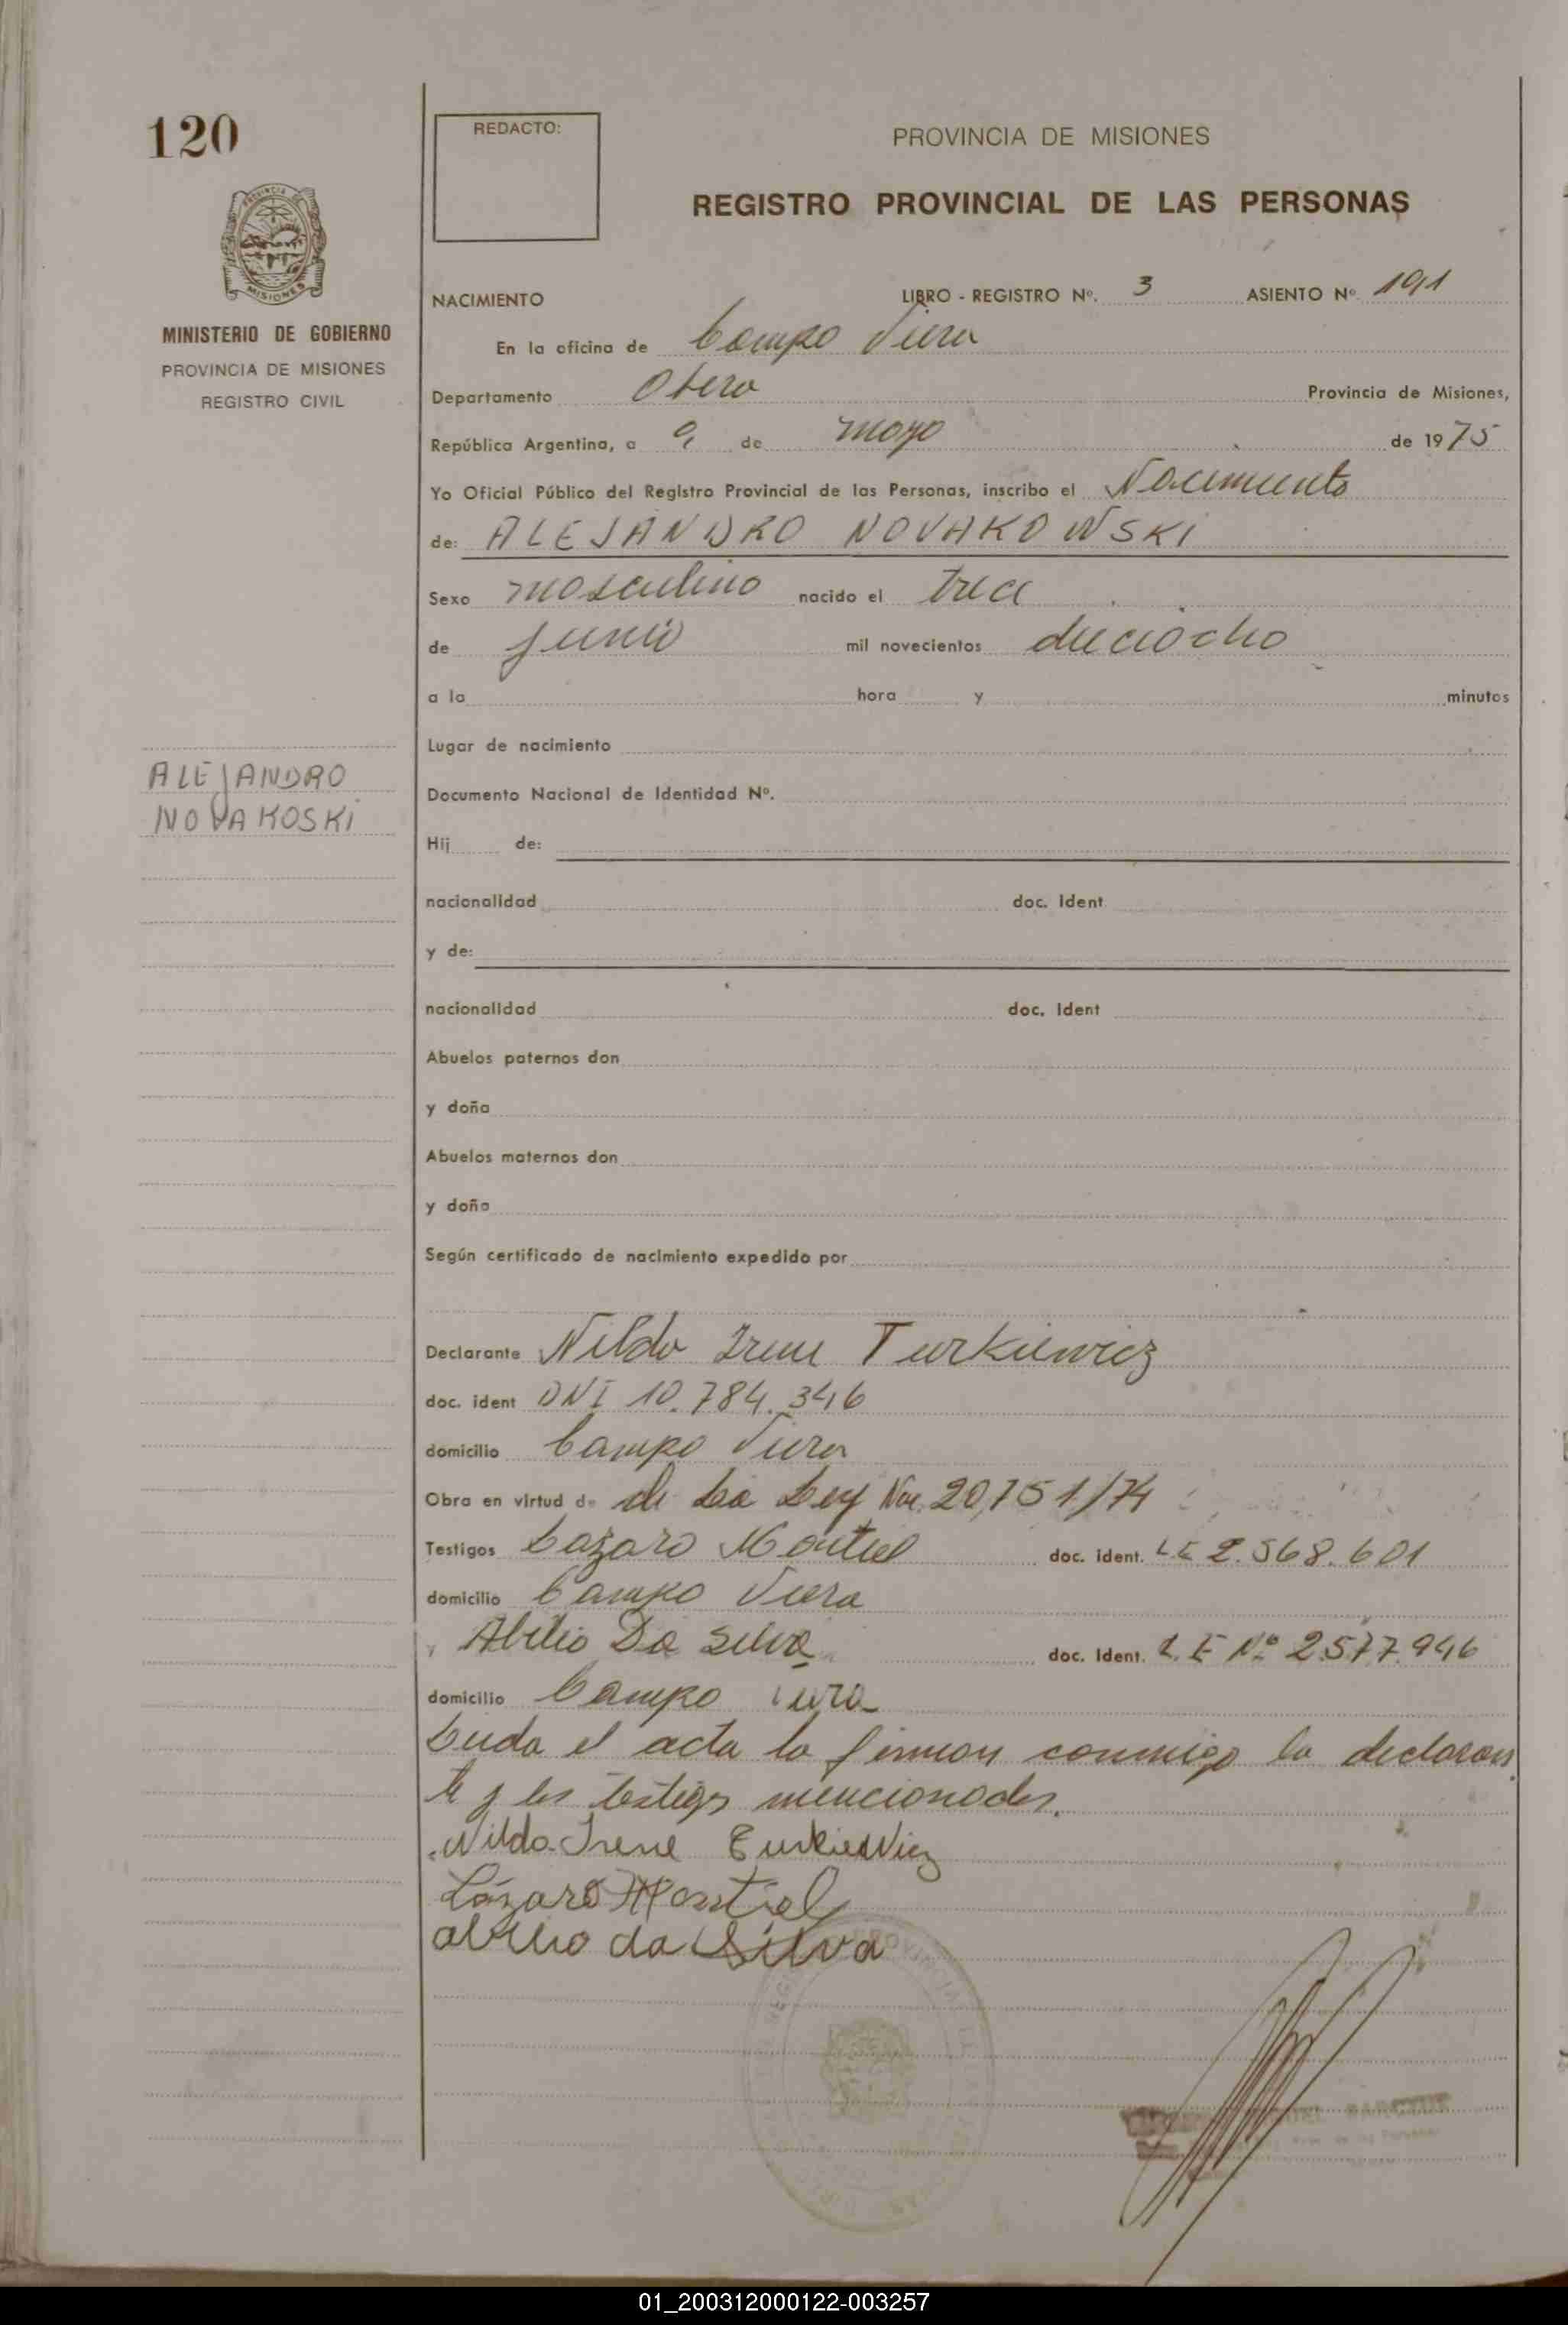 120
REDACTO:
PROVINCIA DE MISIONES
REGISTRO PROVINCIAL DE LAS PERSONAS
PROVINCIA DE
MISIONES
MINISTERIO DE GOBIERNO
PROVINCIA DE MISIONES
REGISTRO CIVIL
NACIMIENTO LIBRO - REGISTRO Nº. 3 ASIENTO Nº 191
En la oficina de Campo Viera
Departamento Obera Provincia de Misiones,
República Argentina, a 9 de mayo de 1975
Yo Oficial Público del Registro Provincial de las Personas, inscribo el Nacimiento
de: ALEJANDRO NOVAKOWSKI
Sexo masculino nacido el trece
de junio mil novecientos dieciocho
a la hora y minutos
Lugar de nacimiento
ALEJANDRO
NOVAKOSKI
Documento Nacional de Identidad Nº.
Hij de:
nacionalidad doc. Ident
y de:
nacionalidad doc. Ident
Abuelos paternos don
y doña
Abuelos maternos don
y doña
Según certificado de nacimiento expedido por
Declarante Nilda Irene Turkiewicz
doc. ident DNI 10.784.346
domicilio Campo Viera
Obra en virtud de de La Ley Nro. 20,751/74
Testigos Lazaro Montiel doc. ident. LE 2.568.601
domicilio Campo Viera
y Abilio Da Silva doc. Ident. L.E Nº 2577.946
domicilio Campo Viera
Leida el acta la firman conmigo la declaran
te y los testigos mencionados.
Nilda Irene Turkiewicz
Lázaro Montiel
abilio da Silva
01_200312000122-003257